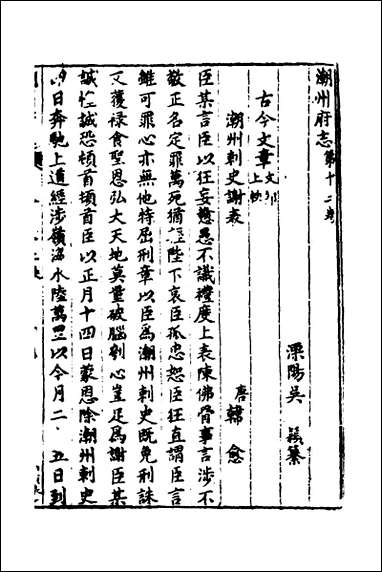 潮州府志第十二卷
溧陽吳 纂
古今文章
潮州刺史謝表
唐韓愈
臣某言臣以狂妄戇愚不識禮度上表陳佛骨事言涉不
敬正名定罪萬死猶輕陛下哀臣孤忠恕臣狂直謂臣言
雖可罪心亦無他特屈刑章以臣為潮州刺史既免刑誅
又獲祿食聖恩弘大天地莫量破腦刳心豈足為謝臣某
誠惶誠恐頓首頓首臣以正月十四日蒙恩除潮州刺史
日奔馳上道經涉嶺海水陸萬里以今月二 五日到